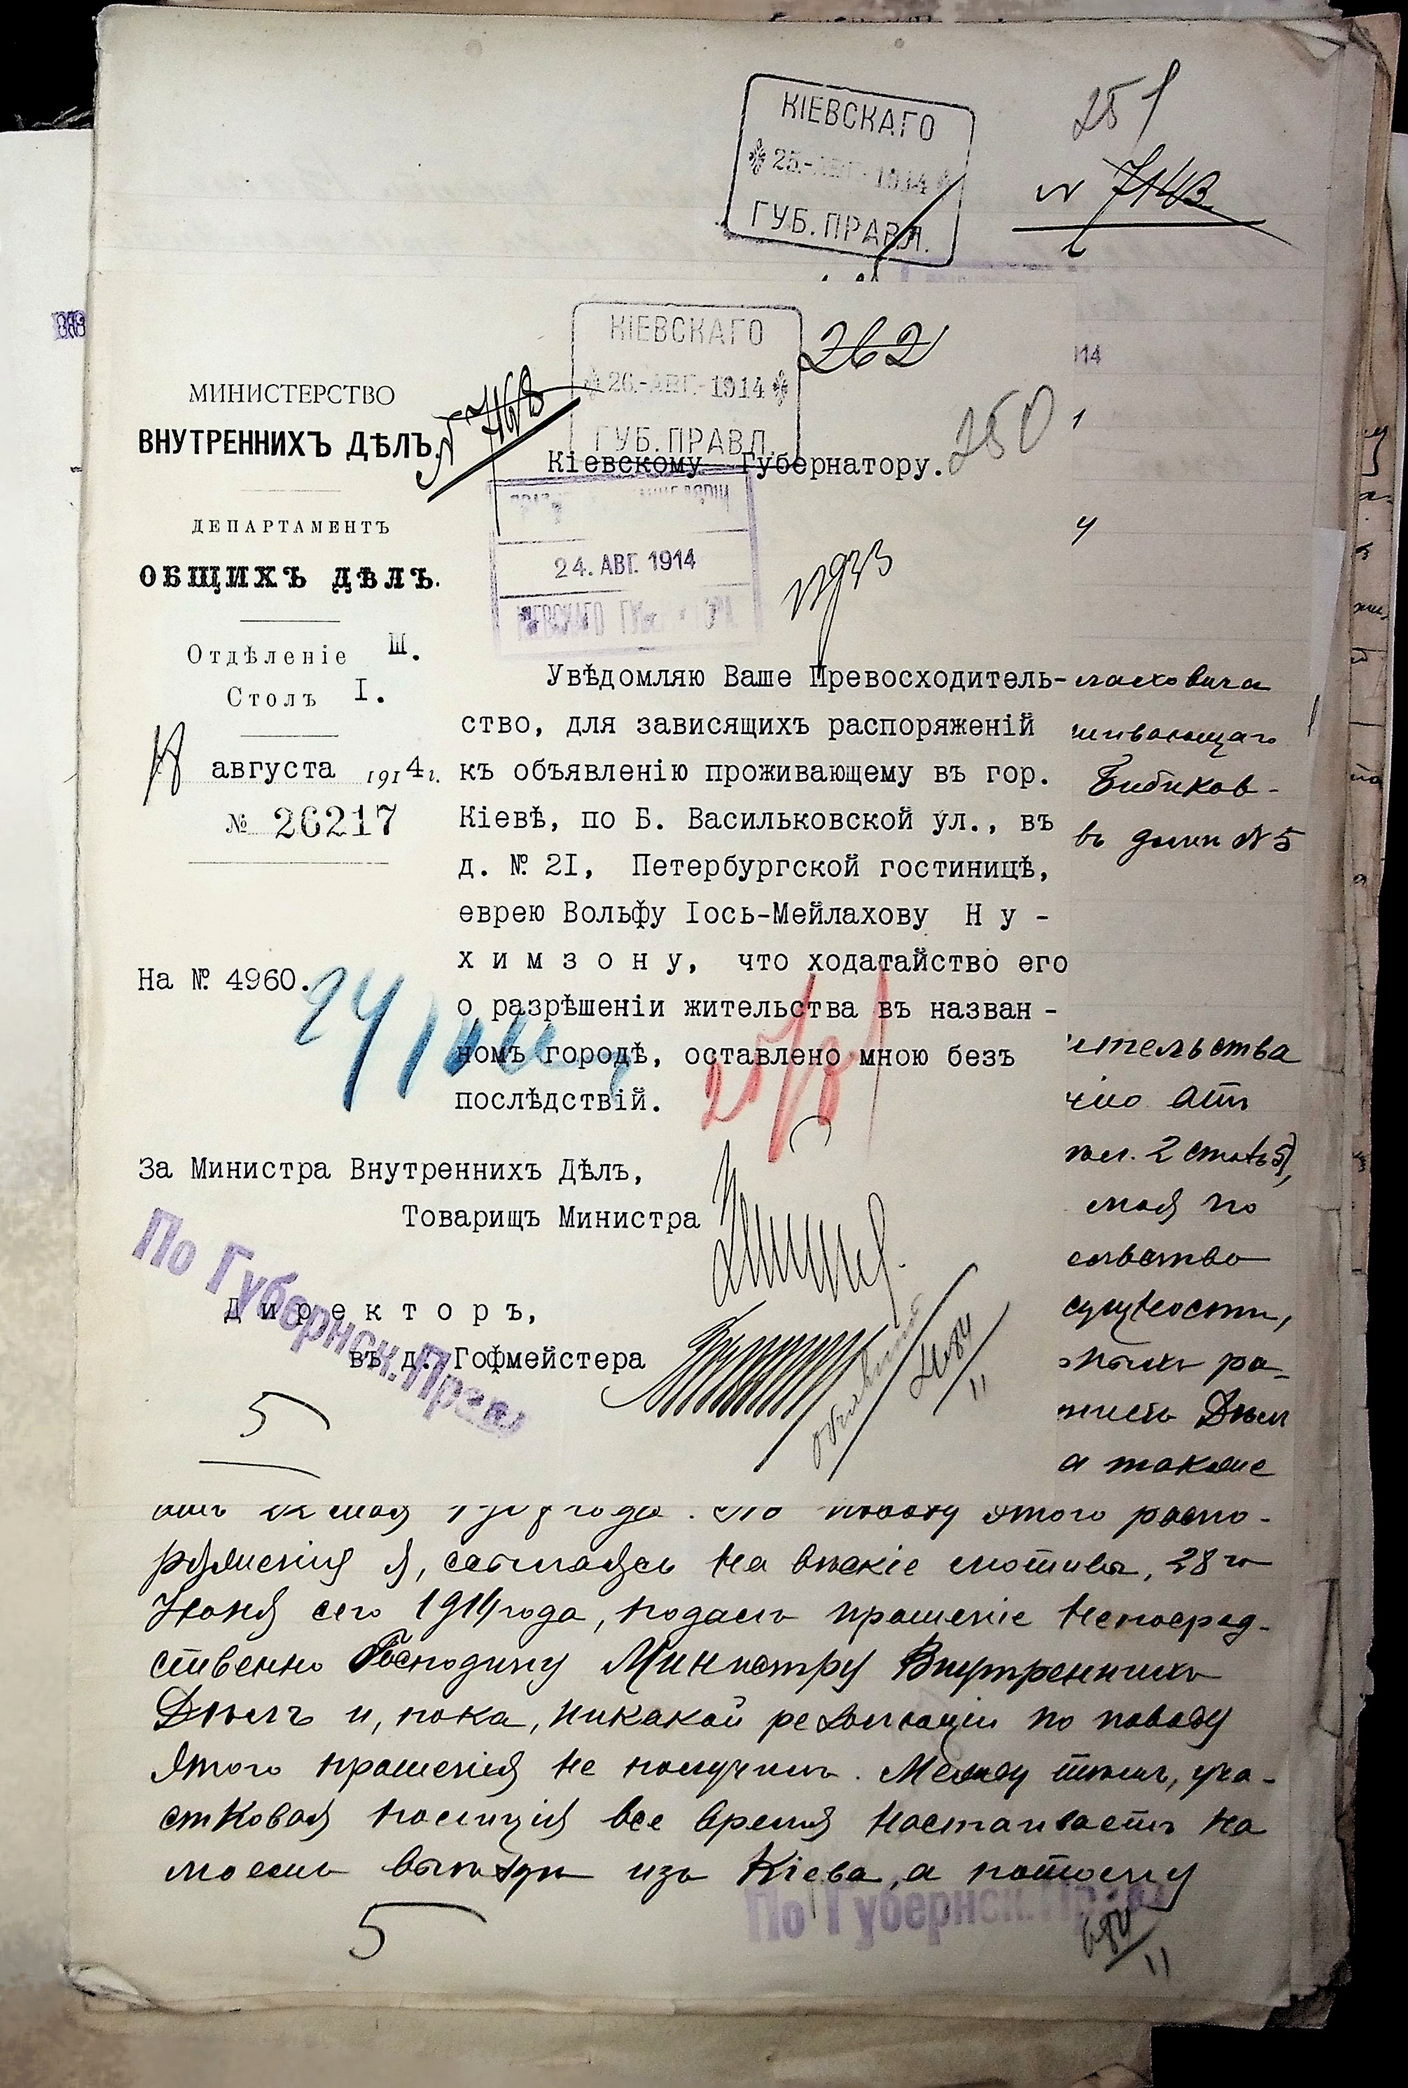 КІЕВСКАГО
25.-АВГ.-1914
ГУБ. ПРАВЛ.
251
N 7143
КІЕВСКАГО
26.-АВГ.-1914
ГУБ. ПРАВЛ.
262
250
N 7168
МИНИСТЕРСТВО
ВНУТРЕННИХЪ ДѢЛЪ.
ДЕПАРТАМЕНТЪ
ОБЩИХЪ ДѢЛЪ.
Отдѣленіе Ш.
Столъ I.
18 августа 1914 г.
№ 26217
На № 4960.
Кіевскому Губернатору.
24. АВГ. 1914
КІЕВСКАГО
Увѣдомляю Ваше Превосходитель-
ство, для зависящихъ распоряженій
къ объявленію проживающему въ гор.
Кіевѣ, по Б. Васильковской ул., въ
д. № 2I, Петербургской гостиницѣ,
еврею Вольфу Іось-Мейлахову Н у -
х и м з о н у, что ходатайство его
о разрѣшеніи жительства въ назван -
номъ городѣ, оставлено мною безъ
послѣдствій.
За Министра Внутреннихъ Дѣлъ,
Товарищъ Министра
Д и р е к т о р ъ,
въ д. Гофмейстера
По Губернск. Правл
5
14
Бибиков-
въ домѣ N 5
ительства
2 статьѣ,
мая по
сущности,
Дѣлъ
а также
года. По поводу этого распо-
ряженія я, ссылаясь на вѣскіе мотивы, 28 го
Іюня сего 1914 года, подалъ прошеніе непосред-
ственно Господину Министру Внутреннихъ
Дѣлъ и, пока, никакой резолюціи по поводу
этого прошенія не получилъ. Между тѣмъ, уча-
стковая полиція все время настаиваетъ на
моемъ выѣздѣ изъ Кіева, а потому
5
По Губернск. Правл
684
11